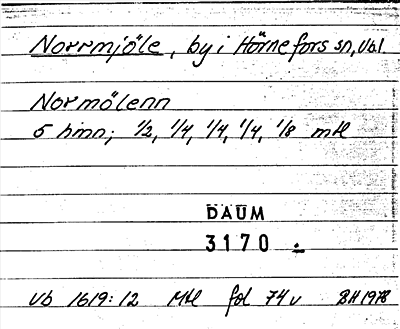 Norrmjöle, by i Hörnefors sn, Vbl
Normölenn
5 hmn; 1/2, 1/4, 1/4, 1/4, 1/8 mtl
DAUM
3170
Vb 1619:12 Mtl fol 74v BH 1978